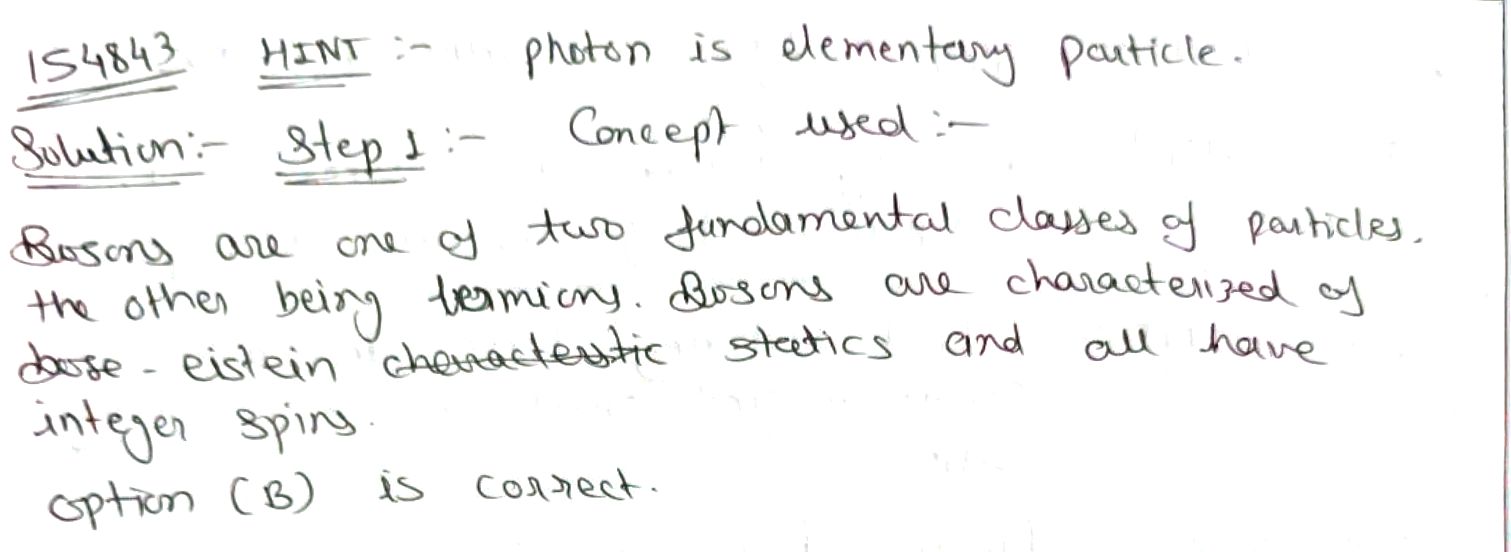 154843 HINT :- photon is elementary particle.
Solution:- Step 1 :- Concept used :-
Bosons are one of two fundamental classes of particles.
the other being fermions. Bosons are characterized of
bose - eistein characterstic statics and all have
integer spins.
option (B) is correct.